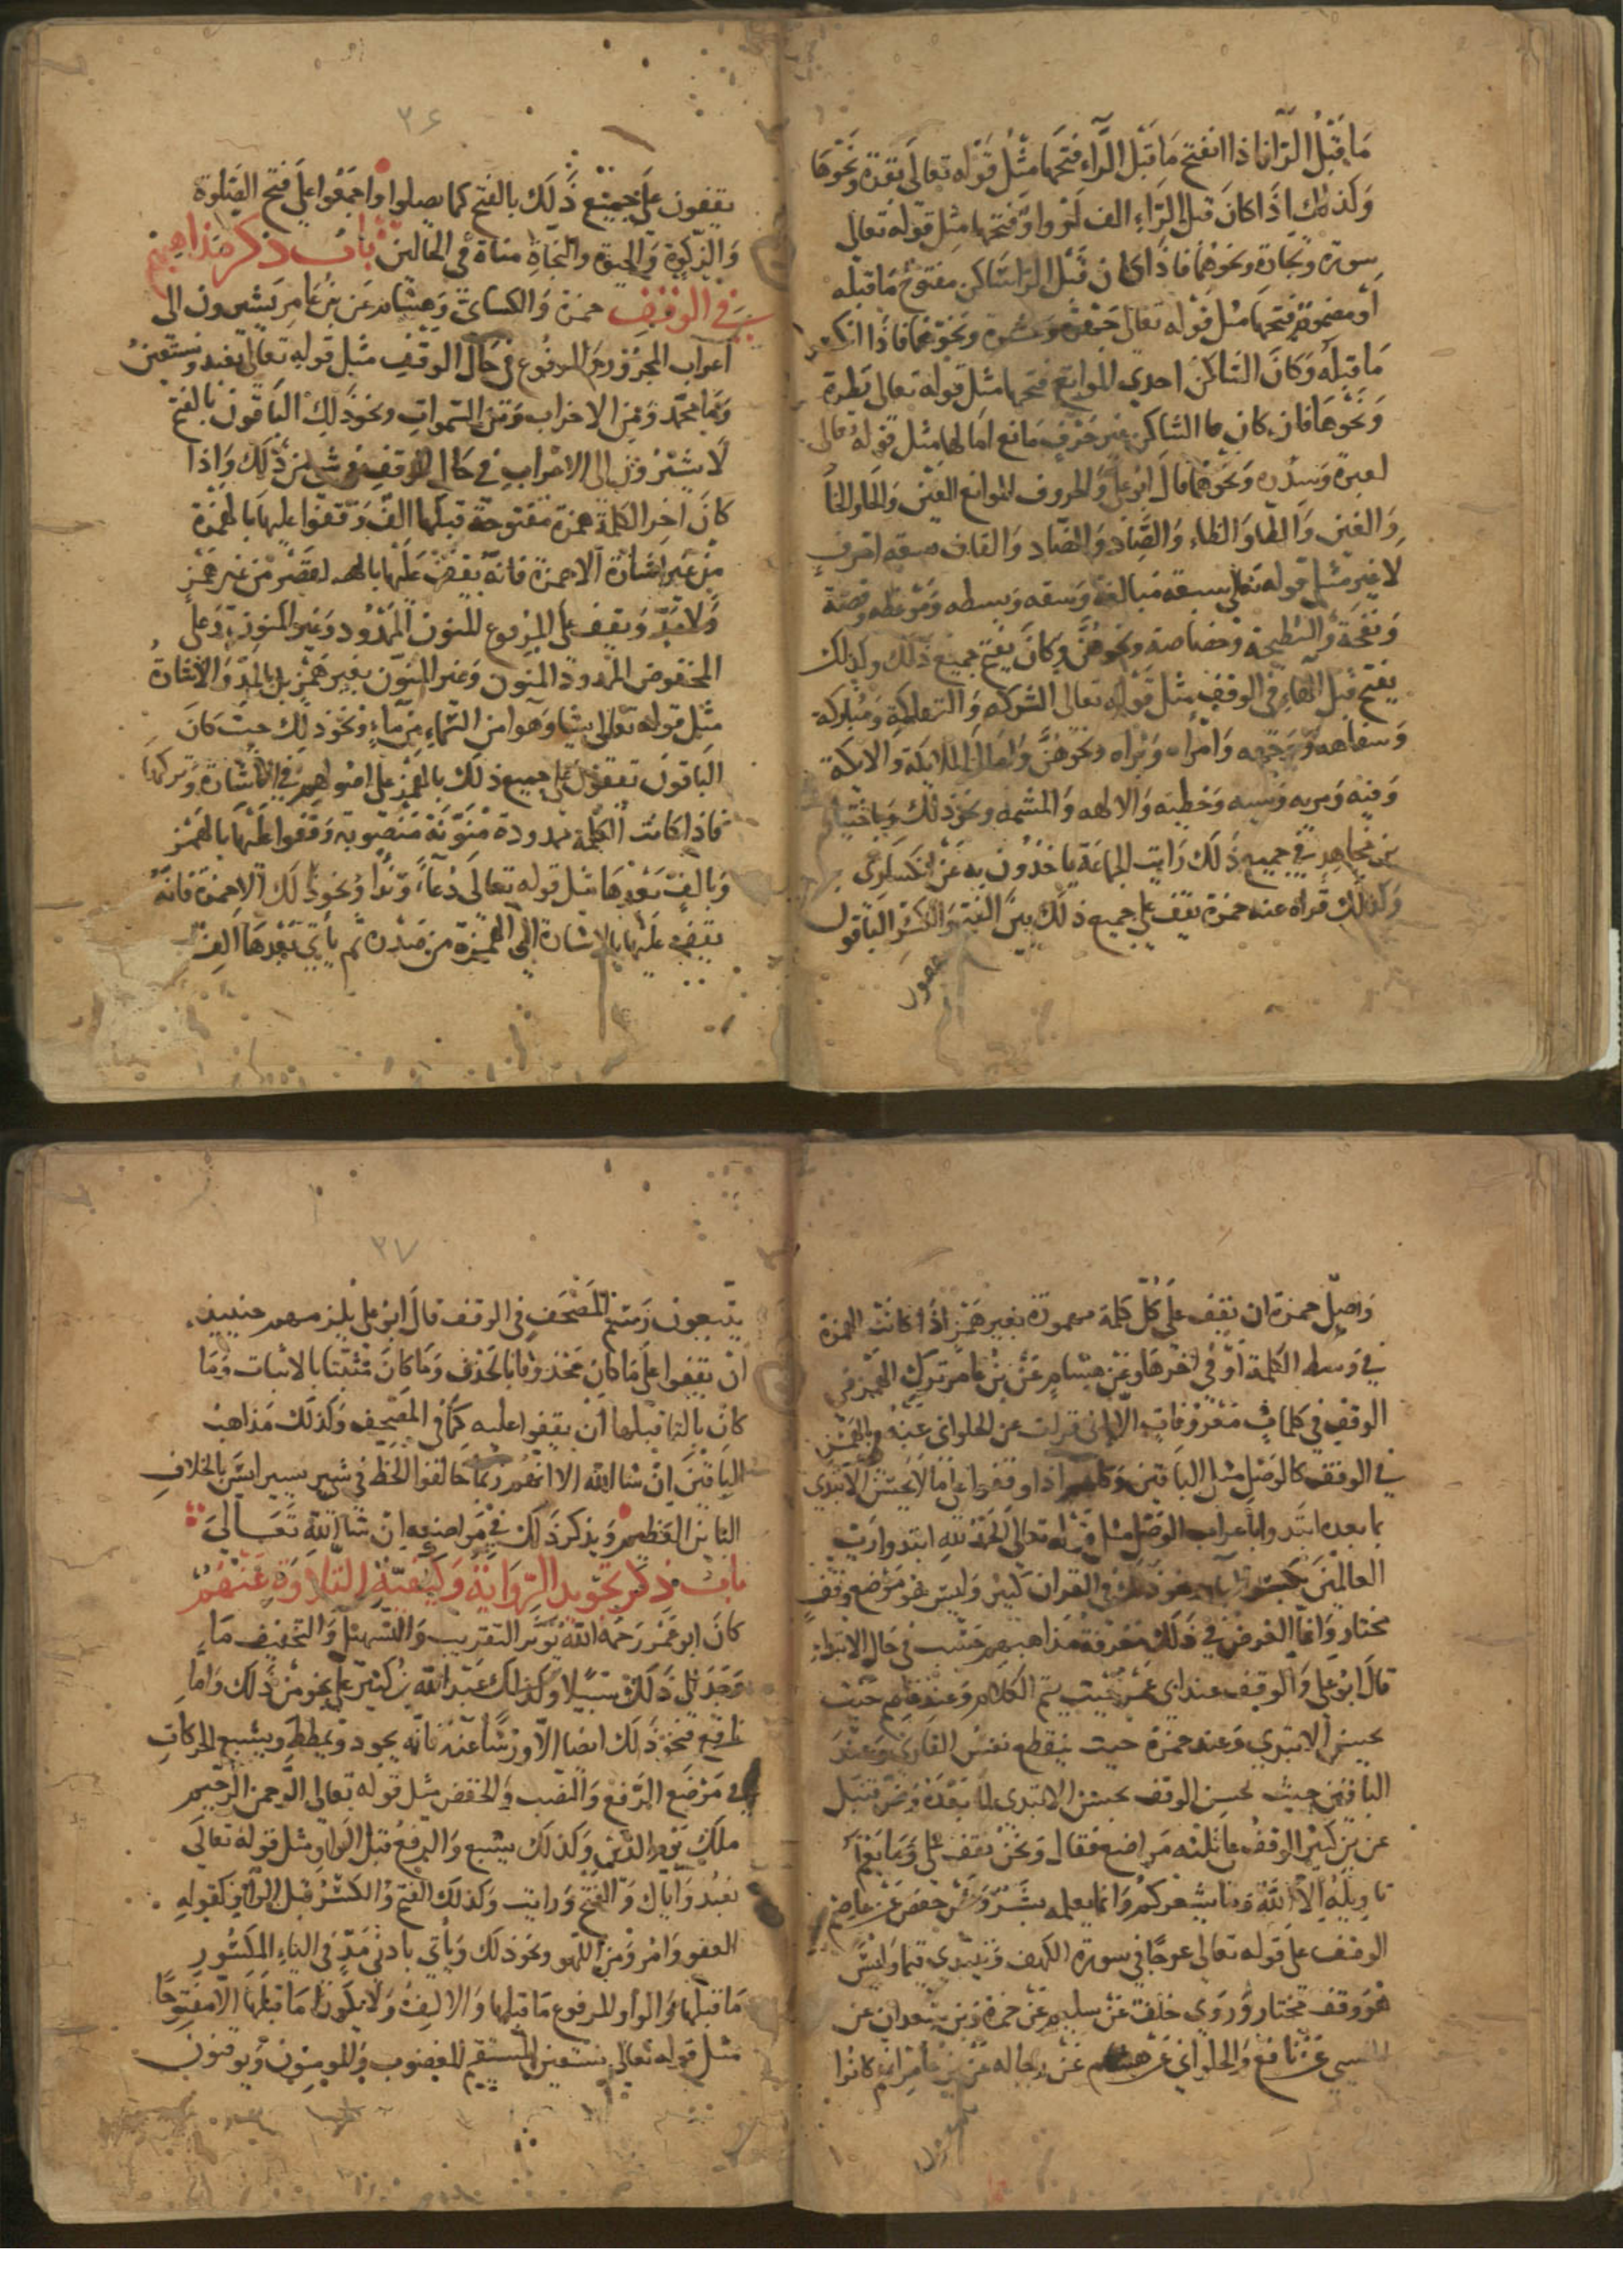 ما قبل الراء فاذا انفتح ما قبل الراء فتحها مثل قوله تعالى بقرة ونحوها
وكذلك اذا كان قبل الراء الف او واو فتحها مثل قوله تعالى
سورة وتجارة ونحوهما فاذا كان قبل الراء ساكن مفتوح ما قبله
او مضموم فتحها مثل قوله تعالى جهرة وعشرة ونحوهما فاذا انكسر
ما قبله وكان الساكن احدى الموانع فتحها مثل قوله تعالى فطرة
ونحوها فان كان الساكن غير حرف مانع امالها مثل قوله تعالى
لعبرة وسدرة ونحوهما قال ابو علي والحروف الموانع العين والحا والخا
والغين والطا والظاء والصاد والضاد والقاف
لا غير مثل قوله تعالى سبعه مبالغة وسعه وبسطه وموعظه وقبضة
ونفحة والنطيحة وخصاصة ونحوهن وكان يفتح جميع ذلك وكذلك
يفتح قبل الهاء في الوقف مثل قوله تعالى الشوكه والتهلكة ومباركة
وسفاهه ووجهه وامراه وبراه ونحوهن وامال الملايكة والايكة
وفيه ومريه وسيه وخطيه والالهه والمشمه ونحو ذلك وباختيار
بن مجاهد في جميع ذلك رايت الجماعة ياخذون به عن الكساى
وكذلك قراه عنه حمزة يقف على جميع ذلك بين الفتح والكسر الباقون
يقفون
٣٦
يقفون على جميع ذلك بالفتح كما يصلوا واجمعوا على فتح الصلوة
والزكوة والحيوة والنجاة مناة في الحالين باب ذكر مذاهبهم
في الوقف حمزة والكساى وهشام عن بن عامر يشيرون الى
اعراب المجرور والمرفوع في حال الوقف مثل قوله تعالى نعبد ونستعين
وبما محمد ومن الاحزاب ومن السموات ونحو ذلك الباقون بالفتح
لا يشيرون الى الاعراب في حال الوقف في شي من ذلك واذا
كان اخر الكلمة همزة مفتوحة قبلها الف وقفوا عليها بالهمزة
من غير اشارة الا حمزة فانه يقف عليها بالقصر من غير همز
ولا مد ويقف على المرفوع المنون الممدود وغير المنون وعلى
المخفوض الممدود المنون وغير المنون بغير همز بل بالمد والاشارة
مثل قوله تعالى يشا وهوا من السماء من ماء ونحو ذلك حيث كان
الباقون يقفون على جميع ذلك بالهمز على اصولهم في الاشارة وتركها
فاذا كانت الكلمة ممدودة منونة منصوبة وقفوا عليها بالهمز
وبالف بعدها مثل قوله تعالى دعاء ونداء ونحو ذلك الا حمزة فانه
يقف عليها بالاشارة الى الهمزة من صدره ثم ياتي بعدها الف
واصل حمزة ان يقف على كل كلمة مهموزة بغير همز اذا كانت الهمزة
في وسط الكلمة او في اخرها وعن هشام عن بن عامر ترك الهمز في
الوقف في كلمات معروفات الا اني قرات عن الحلواني عنه بالهمز
في الوقف كالوصل مثل الباقين وكلهم اذا وقفوا على ما لا يحسن الابتدي
بما بعده ابتدوا باعراب الوصل مثل قوله تعالى الحمد لله ابتدوا رب
العالمين بكسر الباء ونحو ذلك في القران كثير وليس هو موضع وقف
مختار وانما الغرض في ذلك معرفة مذاهبهم حسب في حال الابتداء
قال ابو علي والوقف عند ابي عمر حيث يتم الكلام وعند عاصم حيث
يحسن الابتدي وعند حمزة حيث ينقطع نفس القارى وعند
الباقين حيث يحسن الوقف يحسن الابتدي لما بعده وعن قنبل
عن بن كثير الوقف على ثلثه مواضع فقال ونحن نقف على وما يعلم
تاويله الا الله وما يشعركم وانما يعلمه بشر وعن حفص عن عاصم
الوقف على قوله تعالى عوجا في سورة الكهف ويبتدي قيما وليس
هو وقف مختار وروى خلف عن سليم عن حمزة وبن سعدان عن
المسيبي عن نافع والحلواني عن هشام عن رجاله عن بن عامر انهم كانوا
٣٧
يتبعون رسم المصحف في الوقف قال ابو علي يلزمهم حينيذ
ان يقفوا على ما كان محذوفا بالحذف وما كان مثبتا بالاثبات وما
كان بالتا قبلها ان يقفوا عليه كما في المصحف وكذلك مذاهب
الباقين ان شا الله الا انهم ربما خالفوا الخط في شي يسير ليس بالخلاف
البائن العظيم ويذكر ذلك في مواضعه ان شا الله تعالى
باب ذكر تجويد الرواية وكيفية التلاوة عنهم
كان ابو عمر رحمه الله يوثر التقريب والتسهيل والتخفيف ما
وجد الى ذلك سبيلا وكذلك عبد الله بن كثير على نحو من ذلك واما
نافع فنحو ذلك ايضا الا ورشا عنه فانه يجود ويمطط ويشبع الحركات
في موضع الرفع والنصب والخفض مثل قوله تعالى الرحمن الرحيم
ملك يوم الدين وكذلك يشبع والرفع قبل الواو مثل قوله تعالى
نعبد واياك والفتح ورايت وكذلك الفتح والكسر قبل الواو كقوله
العفو وامر ومن اللهو ونحو ذلك وياتي بادنى مد في الياء المكسور
ما قبلها والواو المرفوع ما قبلها والالف ولا يكون ما قبلها الا مفتوحا
مثل قوله تعالى نستعين المستقيم المغضوب والمومنون ويوقنون